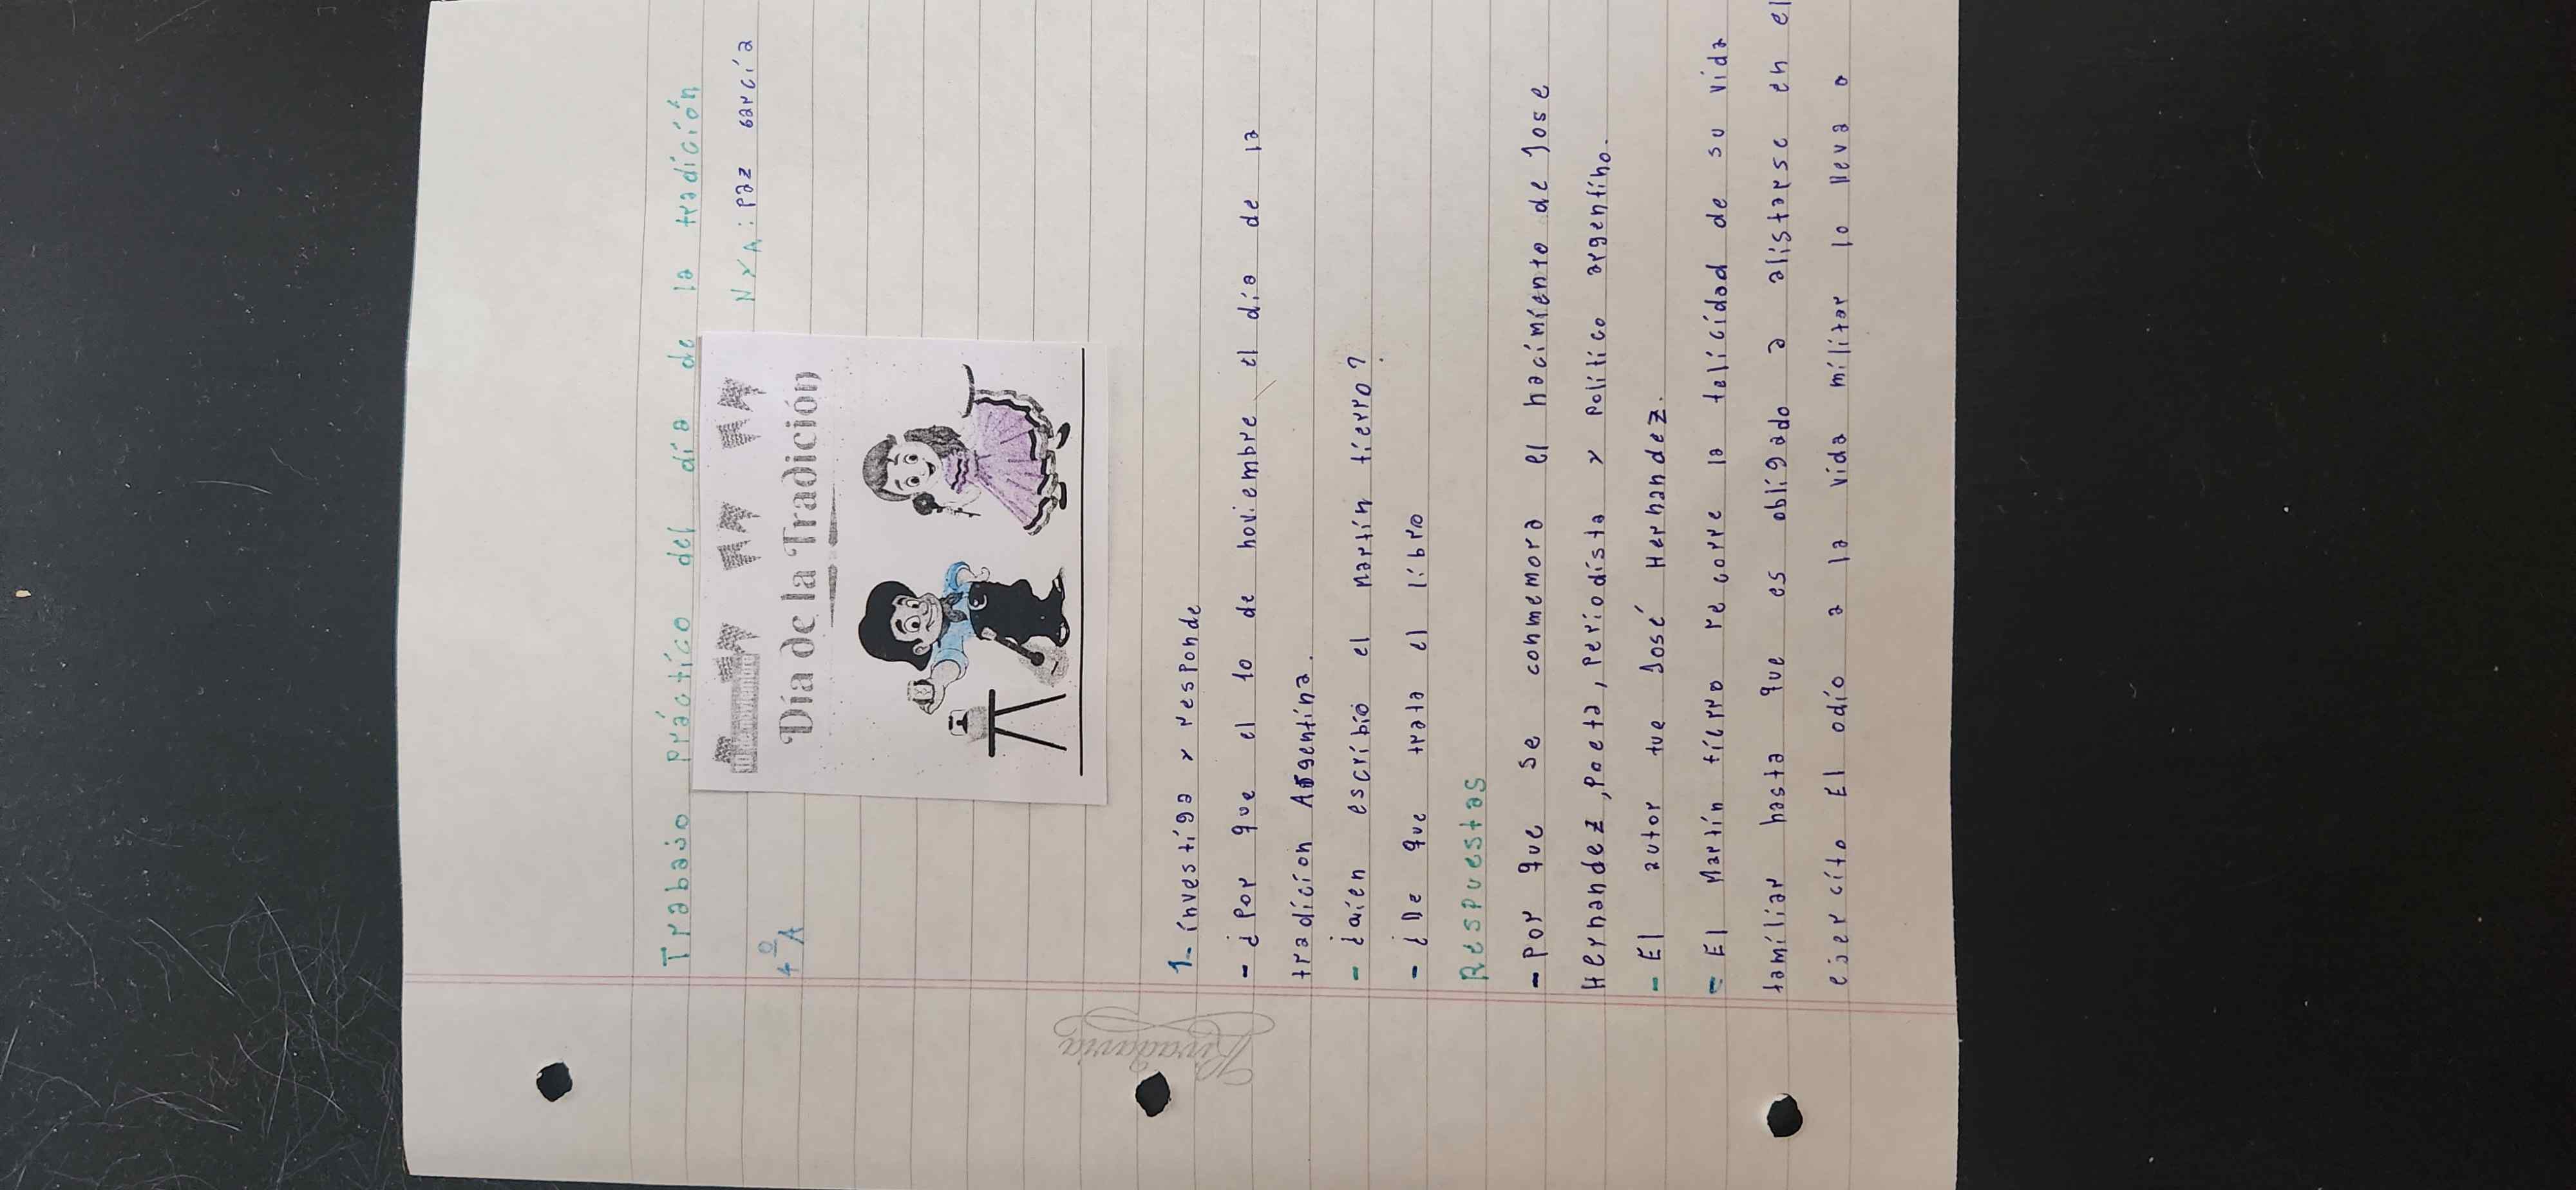 Trabajo práctico del día de la tradición
N Y A: Paz García
4º A
Día de la Tradición
1- investiga y responde
- ¿Por que el 10 de noviembre el día de la
tradicion Argentina.
- ¿Quien escribió el Martín fierro?
- ¿De que trata el libro
Respuestas
- Por que se conmemora el nacimiento de Jose
Hernandez, Poeta, Periodista y Político argentino.
- El autor fue José Hernandez.
- El Martín fierro recorre la felicidad de su vida
familiar hasta que es obligado a alistarse en el
ejercito El odio a la vida militar lo lleva a
Rivadavia